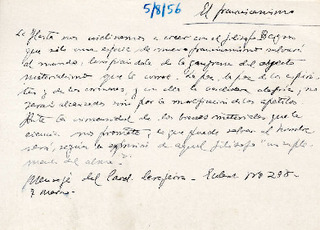 5/8/56
El franciscanismo
Hasta nos inclinamos a creer con el filósofo Bergson
que sólo una especie de nuevo franciscanismo salvará
al mundo, limpiándole de la gangrena del abyecto
materialismo que le corroe. La paz, la paz de los espíri-
tus y de los corazones, y con ella la auténtica alegría, no
serán alcanzados sino por la mortificación de los apetitos.
Ante la comunidad de los bienes materiales que la
ciencia nos promete, lo que puede salvar al hombre
será, según la expresión de aquel filósofo "un suple-
mento del alma".
Mensaje del Card. Cerejeira - Nº 298 -